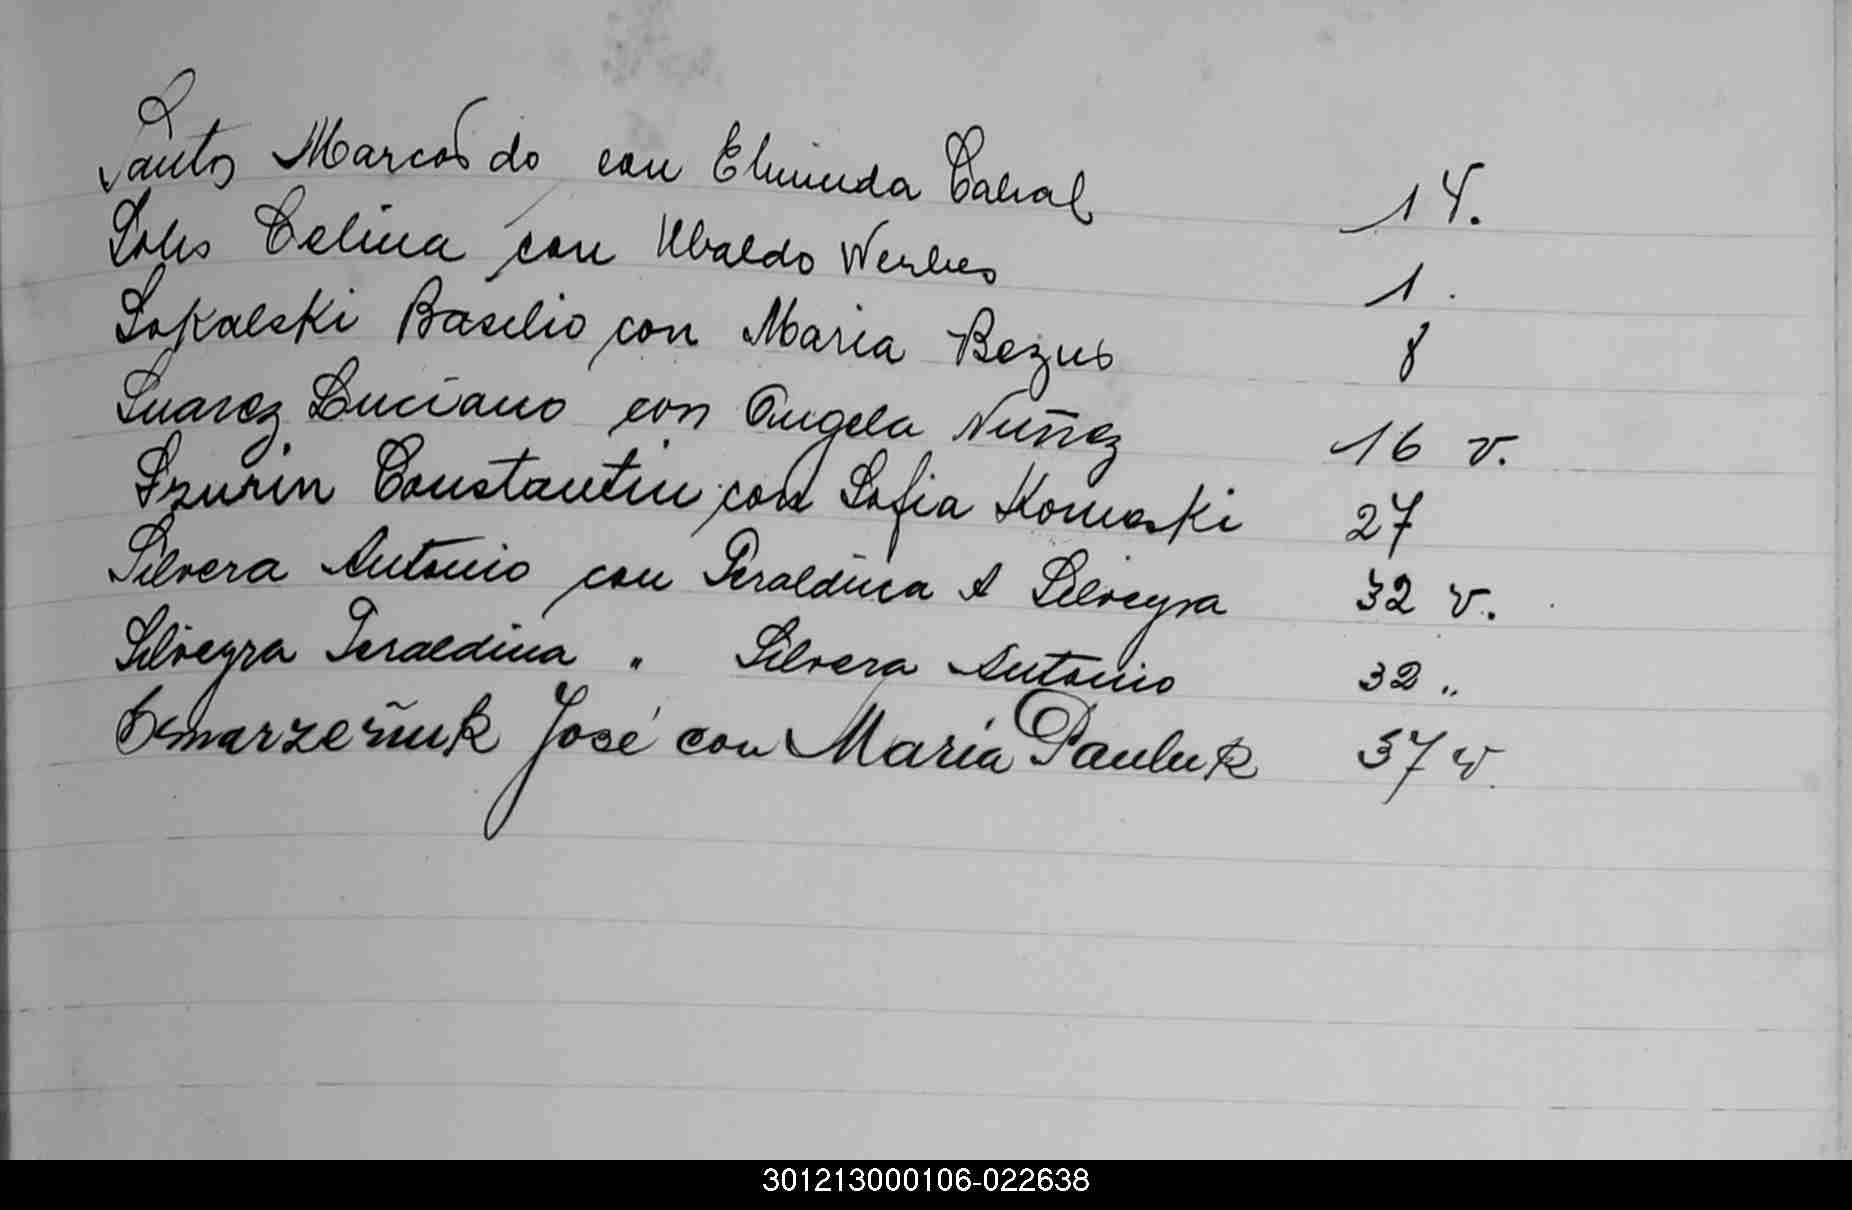 Santos Marcos do con Elminda Cabral 14.
Solis Celina con Ubaldo 1.
Sokalski Basilio con Maria Bezus 8
Suarez Luciano con Angela Nuñez 16 v.
Szurin Constantin con Sofia 27
Silvera Antonio con Geraldina A Silveyra 32 v.
Silveyra Geraldina " Silvera Antonio 32 "
José con María Pauluk 37 v.
301213000106-022638